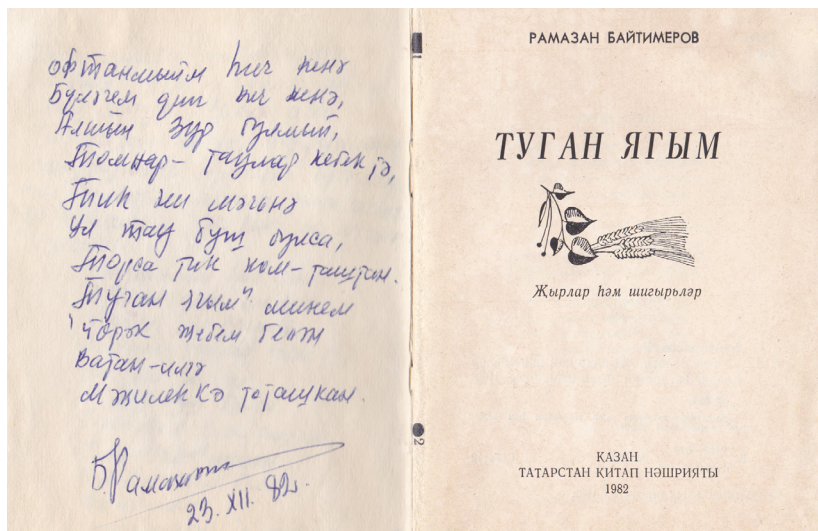 Офтанмыйм һич кенә
Бүләгем дип кич кенә,
Алтын зур булмый,
Томнар – таулар кебек тә,
Тик ни мәгънә
Ул тау буш булса,
Торса тик ком-таштан.
"Туган ягым" минем
Йөрәк җебем белән
Ватан-илгә
Мәңгелеккә тоташкан.
23. XII. 82г.
РАМАЗАН БАЙТИМЕРОВ
ТУГАН ЯГЫМ
Җырлар һәм шигырьләр
ҚАЗАН
ТАТАРСТАН ҚИТАП НӘШРИЯТЫ
1982
2